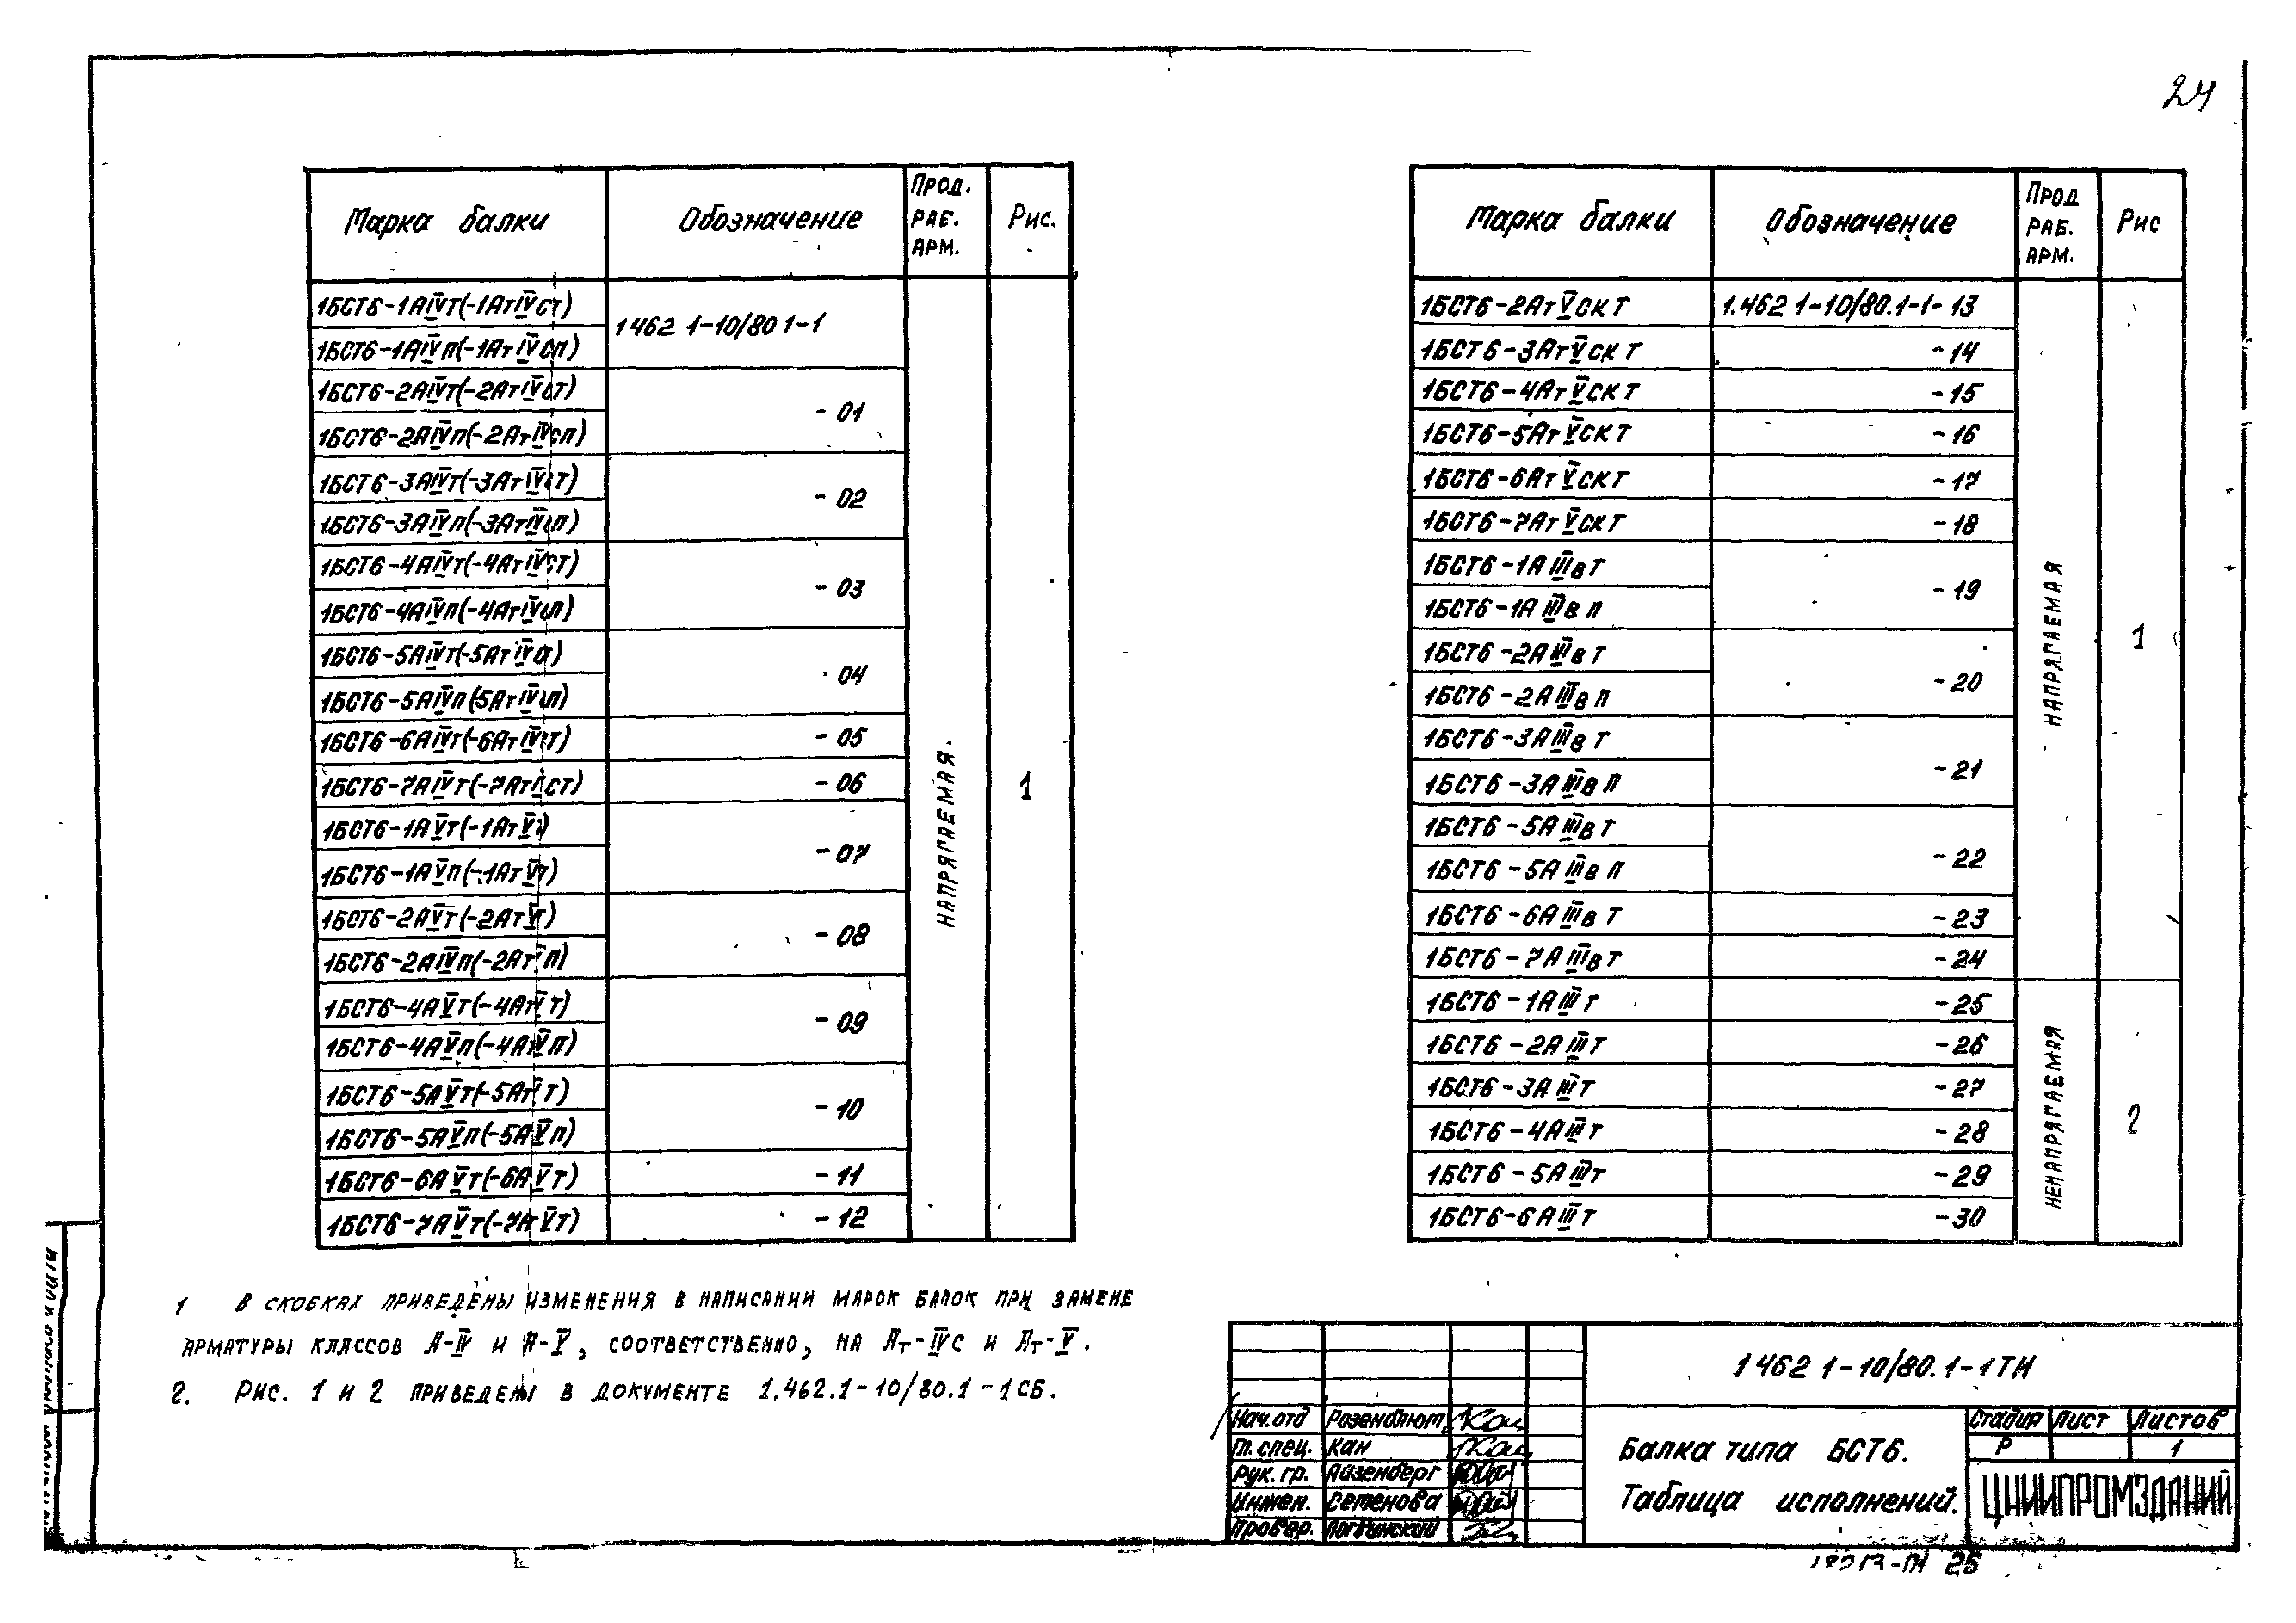 24
Марка балки Обозначение Прод. раб. арм. Рис.
1БСТ6-1АIVт(-1АтIVст) 1 462 1-10/80 1-1
1БСТ6-1АIVп(-1АтIVсп)
1БСТ6-2АIVт(-2АтIVст) -01
1БСТ6-2АIVп(-2АтIVсп)
1БСТ6-3АIVт(-3АтIVст) -02
1БСТ6-3АIVп(-3АтIVсп)
1БСТ6-4АIVт(-4АтIVст) -03
1БСТ6-4АIVп(-4АтIVсп)
1БСТ6-5АIVт(-5АтIVст) -04
1БСТ6-5АIVп(5АтIVсп)
1БСТ6-6АIVт(-6АтIVст) -05
1БСТ6-7АIVт(-7АтIVст) -06
1БСТ6-1АVт(-1АтVт) -07
1БСТ6-1АVп(-1АтVт)
1БСТ6-2АVт(-2АтVт) -08
1БСТ6-2АIVп(-2АтVп)
1БСТ6-4АVт(-4АтVт) -09
1БСТ6-4АVп(-4АтVп)
1БСТ6-5АVт(-5АтVт) -10
1БСТ6-5АVп(-5АVп)
1БСТ6-6АVт(-6АVт) -11
1БСТ6-7АVт(-7АVт) -12
НАПРЯГАЕМАЯ
1
Марка балки Обозначение Прод раб. арм. Рис
1БСТ6-2АтVскт 1.462 1-10/80.1-1-13
1БСТ6-3АтVскт -14
1БСТ6-4АтVскт -15
1БСТ6-5АтVскт -16
1БСТ6-6АтVскт -17
1БСТ6-7АтVскт -18
1БСТ6-1АIIIвт -19
1БСТ6-1АIIIвп
1БСТ6-2АIIIвт -20
1БСТ6-2АIIIвп
1БСТ6-3АIIIвт -21
1БСТ6-3АIIIвп
1БСТ6-5АIIIвт -22
1БСТ6-5АIIIвп
1БСТ6-6АIIIвт -23
1БСТ6-7АIIIвт -24
НАПРЯГАЕМАЯ
1
1БСТ6-1АIIIт -25
1БСТ6-2АIIIт -26
1БСТ6-3АIIIт -27
1БСТ6-4АIIIт -28
1БСТ6-5АIIIт -29
1БСТ6-6АIIIт -30
НЕНАПРЯГАЕМАЯ
2
1 В скобках приведены изменения в написании марок балок при замене
арматуры классов А-IV и А-V, соответственно, на Ат-IVс и Ат-V.
2. Рис. 1 и 2 приведены в документе 1.462.1-10/80.1-1СБ.
1 462 1-10/80.1-1ТИ
Нач.отд Розенблюм
Гл.спец. Кан
Рук.гр. Айзенберг
Инжен. Семенова
Провер. Логвинский
Балка типа БСТ6.
Таблица исполнений.
Стадия Лист Листов
Р 1
ЦНИИПРОМЗДАНИЙ
25